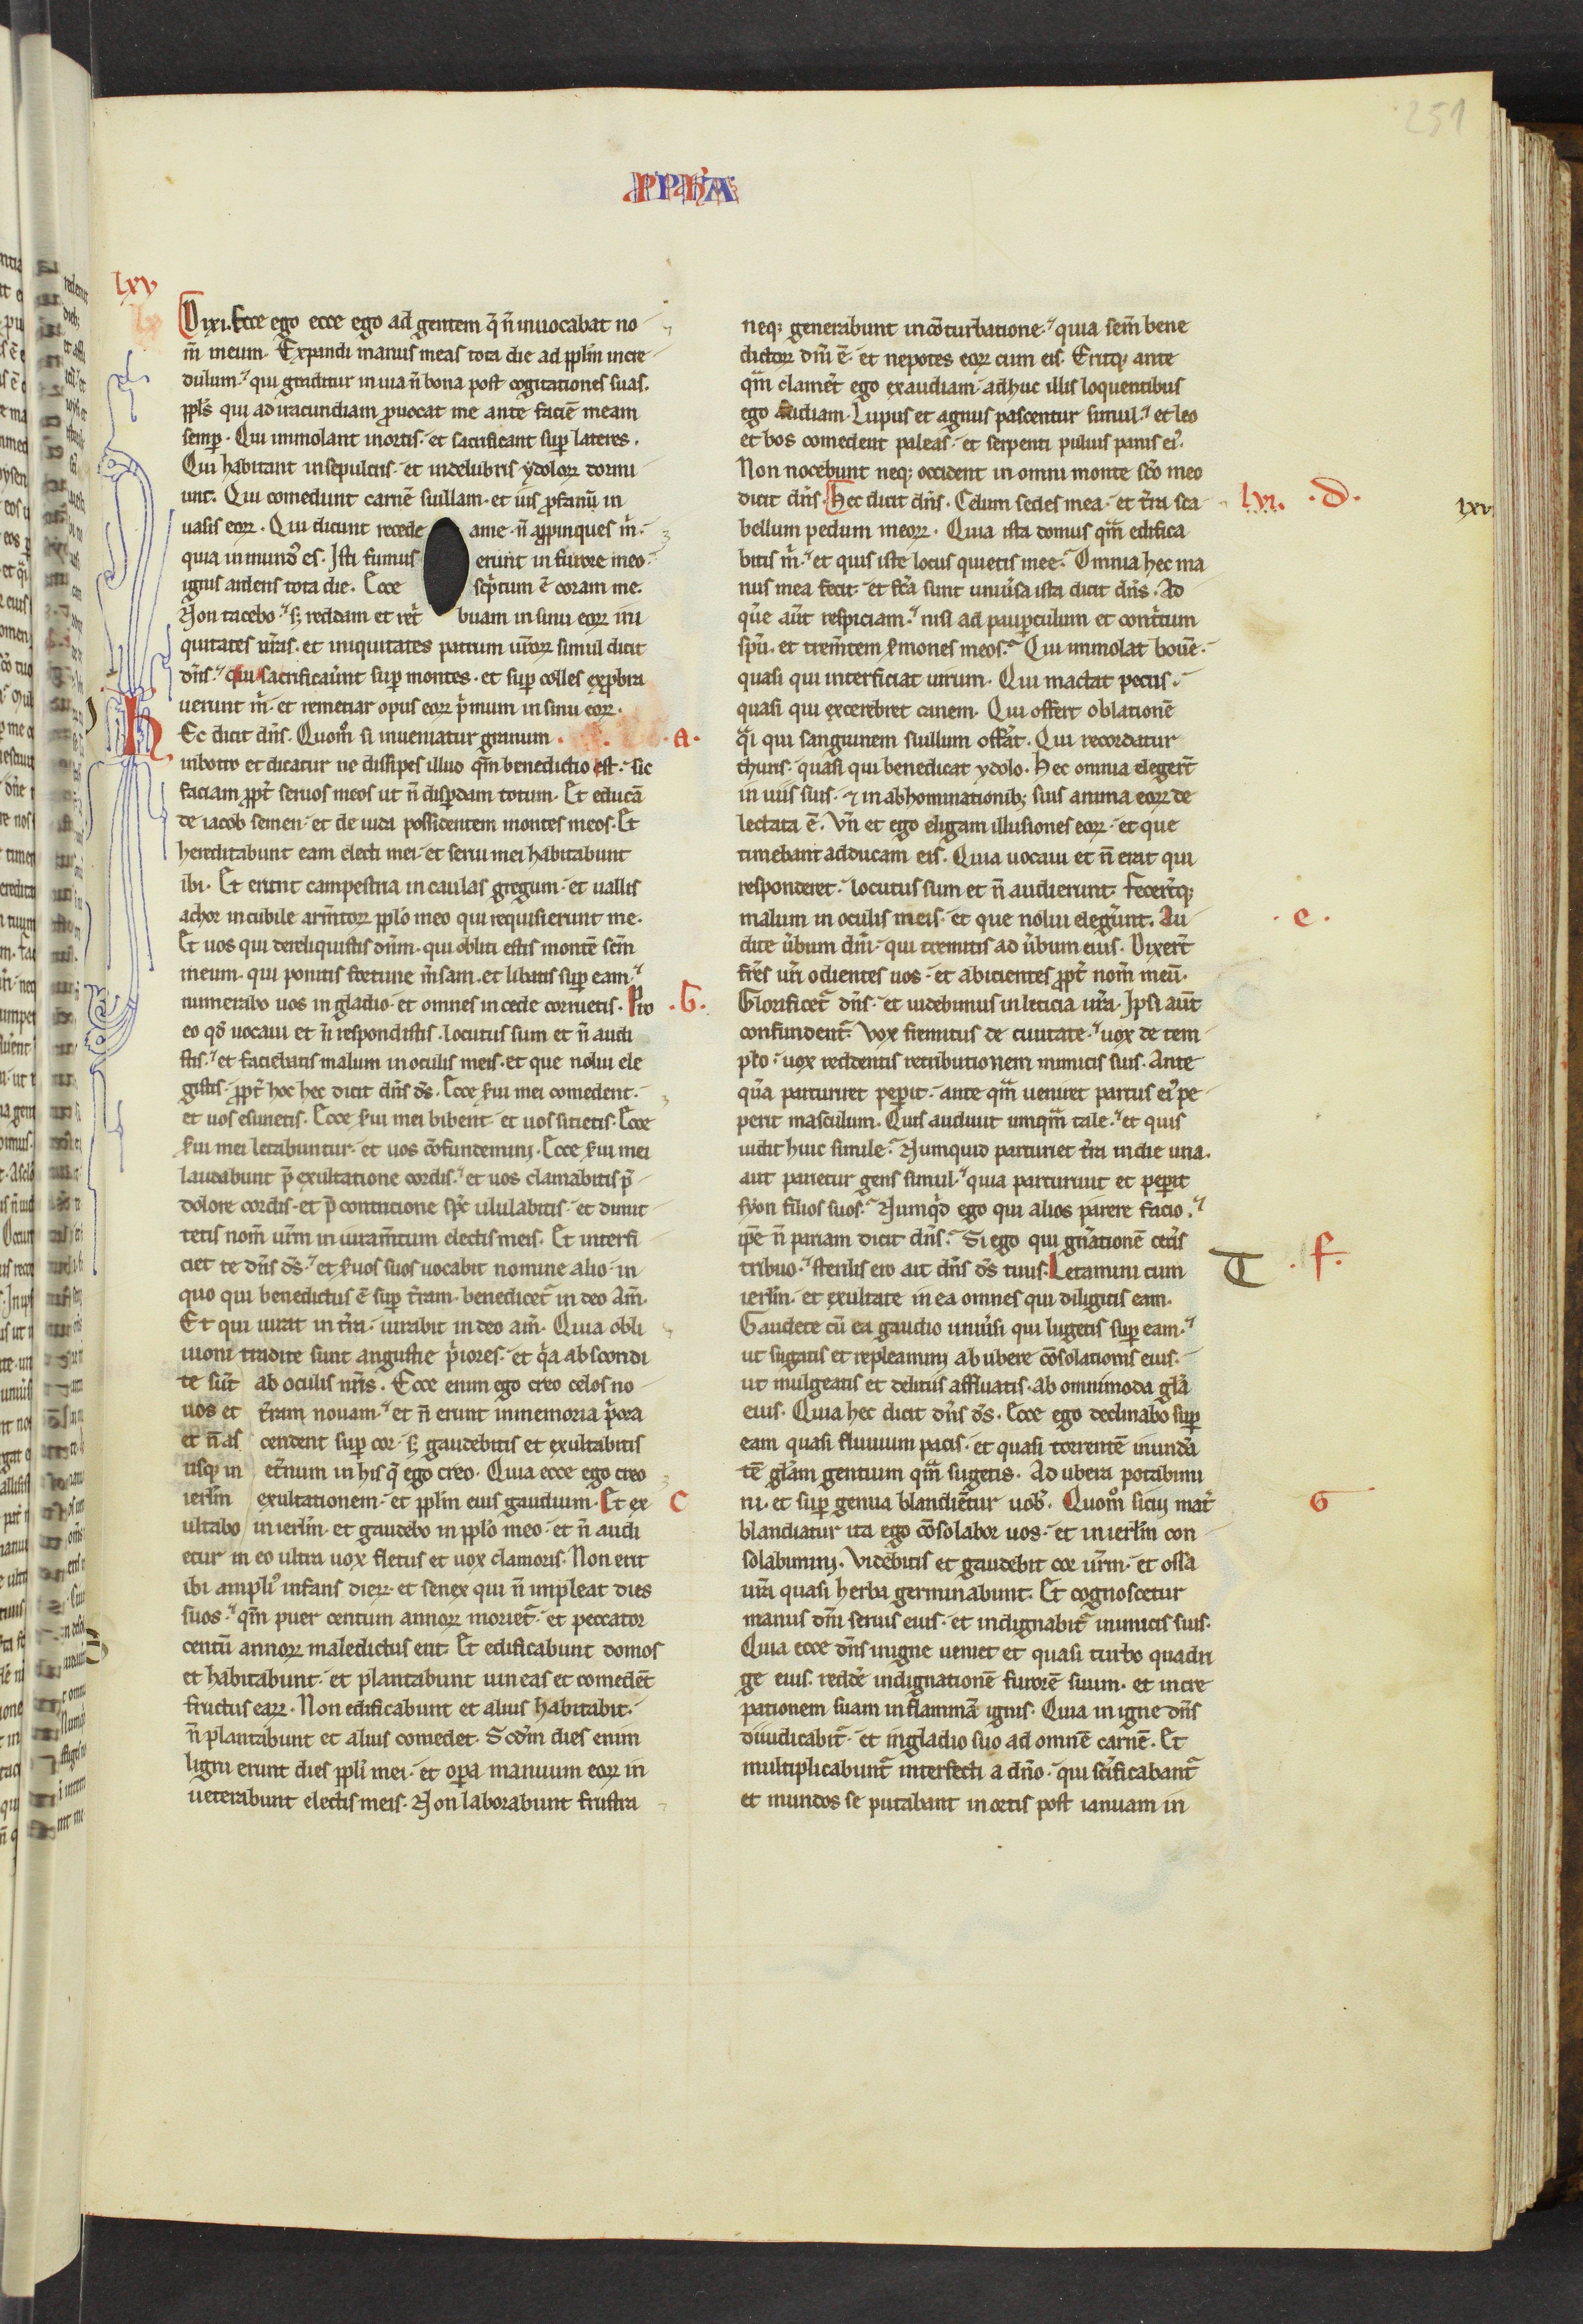 251
PPhA
lxv
Dixi. Ecce ego ecce ego ad gentem q̄ n̄ inuocabat no
m̄ meum. Expandi manus meas tota die ad ppl̄m incre
dulum. qui graditur in uia n̄ bona post cogitationes suas.
ppl̄s qui ad iracundiam ꝓuocat me ante faciē meam
semꝑ. Qui immolant in ortis. et sacrificant suꝑ lateres.
Qui habitant in sepulcris. et in delubris ydoloꝝ dormi
unt. Qui comedunt carnē suillam. et ius ꝓfanū in
uasis eoꝝ. Qui dicunt recede a me. n̄ aꝓpinques m̄.
quia inmundꝰ es. Isti fumus erunt in furore meo.
ignis ardens tota die. Ecce sc̄ptum ē coram me.
Non tacebo. sꝫ reddam et ret̄ buam in sinu eoꝝ ini
quitates ur̄as. et iniquitates patrum ur̄oꝝ simul dicit
dn̄s. qui sacrificauer̄t suꝑ montes. et suꝑ colles exꝓbra
uerunt m̄. et remetiar opus eoꝝ p̄mum in sinu eoꝝ.
hEc dicit dn̄s. Quom̊ si inueniatur granum . a .
in botro et dicatur ne dissipes illud qm̄ benedictio est. sic
faciam ꝓpt̄ seruos meos ut n̄ disꝑdam totum. Et educā
de iacob semen. et de iuda possidentem montes meos. Et
hereditabunt eam electi mei. et serui mei habitabunt
ibi. Et erunt campestria in caulas gregum. et uallis
achor in cubile arm̄toꝝ ppl̄o meo qui requisierunt me.
Et uos qui dereliquistis dn̄m. qui obliti estis montē sc̄m
meum. qui ponitis fortune m̄sam. et libatis suꝑ eam.
numerabo uos in gladio. et omnes in cede corruetis. Pro . b .
eo qđ uocaui et n̄ respondistis. locutus sum et n̄ audi
stis. et faciebatis malum in oculis meis. et que nolui ele
gistis. ꝓpt̄ hoc hec dicit dn̄s ds̄. Ecce ẜui mei comedent.
et uos esurietis. Ecce ẜui mei bibent. et uos sitietis. Ecce
ẜui mei letabuntur. et uos cōfundemini. Ecce ẜui mei
laudabunt p̄ exultatione cordis. et uos clamabitis p̄
dolore cordis. et p̄ contritione spc̄ ululabitis. et dimit
tetis nom̄ ur̄m in iuram̄tum electis meis. Et interfi
ciet te dn̄s ds̄. et ẜuos suos uocabit nomine alio. in
quo qui benedictus ē suꝑ tr̄am. benedicet̄ in deo am̄.
Et qui iurat in tr̄a. iurabit in deo am̄. Quia obli
uioni tradite sunt angustie p̄iores. et q̄a abscondi
te sūt ab oculis nr̄is. Ecce enim ego creo celos no
uos et tr̄am nouam. et n̄ erunt in memoria p̄ora
et n̄ as cendent suꝑ cor. sꝫ gaudebitis et exultabitis
usqꝫ in et̄num in his q̄ ego creo. Quia ecce ego creo
ierl̄m exultationem. et ppl̄m eius gaudium. Et ex c
ultabo in ierl̄m. et gaudebo in ppl̄o meo. et n̄ audi
etur in eo ultra uox fletus et uox clamoris. Non erit
ibi ampliꝰ infans dierꝝ. et senex qui n̄ impleat dies
suos. qm̄ puer centum annoꝝ moriet̄. et peccator
centū annoꝝ maledictus erit. Et edificabunt domos
et habitabunt. et plantabunt uineas et comedēt
fructus earꝝ. Non edificabunt et alius habitabit.
n̄ plantabunt et alius comedet. Scdm̄ dies enim
ligni erunt dies ppl̄i mei. et oꝑa manuum eoꝝ in
ueterabunt electis meis. Non laborabunt frustra
neqꝫ generabunt in cōturbatione. quia sem̄ bene
dictoꝝ dn̄i ē. et nepotes eoꝝ cum eis. Eritqꝫ ante
qm̄ clamēt ego exaudiam. adhuc illis loquentibus
ego audiam. Lupus et agnus pascentur simul. et leo
et bos comedent paleas. et serpenti puluis panis eiꝰ.
Non nocebunt neqꝫ occident in omni monte sc̄o meo
dicit dn̄s. Hec dicit dn̄s. Celum sedes mea. et tr̄a sca lxvi. . d . lxvi
bellum pedum meoꝝ. Quia ista domus qm̄ edifica
bitis m̄. et quis iste locus quietis mee. Omnia hec ma
nus mea fecit. et fc̄a sunt uniu̇sa ista dicit dn̄s. Ad
que aūt respiciam. nisi ad pauꝑculum et cont̄tum
spū. et trem̄tem ẜmones meos. Qui immolat bouē.
quasi qui interficiat uirum. Qui mactat pecus.
quasi qui excerebret canem. Qui offert oblationē
q̄i qui sanguinem suillum offerat. Qui recordatur
thuris. quasi qui benedicat ydolo. Hec omnia eleger̄t
in uiis suis. ⁊ in abhominationibꝫ suis anima eoꝝ de
lectata ē. Vn̄ et ego eligam illusiones eoꝝ. et que
timebant adducam eis. Quia uocaui et n̄ erat qui
responderet. locutus sum et n̄ audierunt. fecer̄tqꝫ
malum in oculis meis. et que nolui eleger̄unt. Au . e .
dite ūbum dn̄i. qui tremitis ad ūbum eius. Dixer̄t
fr̄es ur̄i odientes uos. et abicientes ꝓpt̄ nom̄ meū.
Glorificet̄ dn̄s. et uidebimus in leticia ur̄a. Ipsi aūt
confundent̄. Vox fremitus de ciuitate. uox de tem
plo. uox reddentis retributionem inimicis suis. Ante
q̄a parturiret peperit. ante qm̄ ueniret partus eiꝰ pe
perit masculum. Quis audiuit umqm̄ tale. et quis
uidit huic simile. Numquid parturiet tr̄a in die una.
aut parietur gens simul. quia parturiuit et peperit
syon filios suos. Numqd̄ ego qui alios parere facio.
ip̄e n̄ pariam dicit dn̄s. Si ego qui gn̄ationē cet̄is
tribuo. sterilis ero ait dn̄s ds̄ tuus. Letamini cum T . f .
ierl̄m. et exultate in ea omnes qui diligitis eam.
Gaudete cū ea gaudio uniu̇si qui lugetis suꝑ eam.
ut sugatis et repleamini ab ubere cōsolationis eius.
ut mulgeatis et delitiis affluatis. ab omnimoda gl̄a
eius. Quia hec dicit dn̄s ds̄. Ecce ego declinabo suꝑ
eam quasi fluuium pacis. et quasi torrentē inundā
tē gl̄am gentium qm̄ sugetis. Ad ubera portabimi
ni. et suꝑ genua blandiētur uobꝭ. Quom̊ si cui mat̄ G
blandiatur ita ego cōsolabor uos. et in ierl̄m con
solabimini. Videbitis et gaudebit cor ur̄m. et ossa
ur̄a quasi herba germinabunt. Et cognoscetur
manus dn̄i seruis eius. et indignabit̄ inimicis suis.
Quia ecce dn̄s in igne ueniet et quasi turbo quadri
ge eius. redde̅ indignationē furorē suum. et incre
pationem suam in flammā ignis. Quia in igne dn̄s
diiudicabit̄. et in gladio suo ad omnē carnē. Et
multiplicabunt̄ interfecti a dn̄o. qui sc̄ificabant̄
et mundos se putabant in ortis post ianuam in